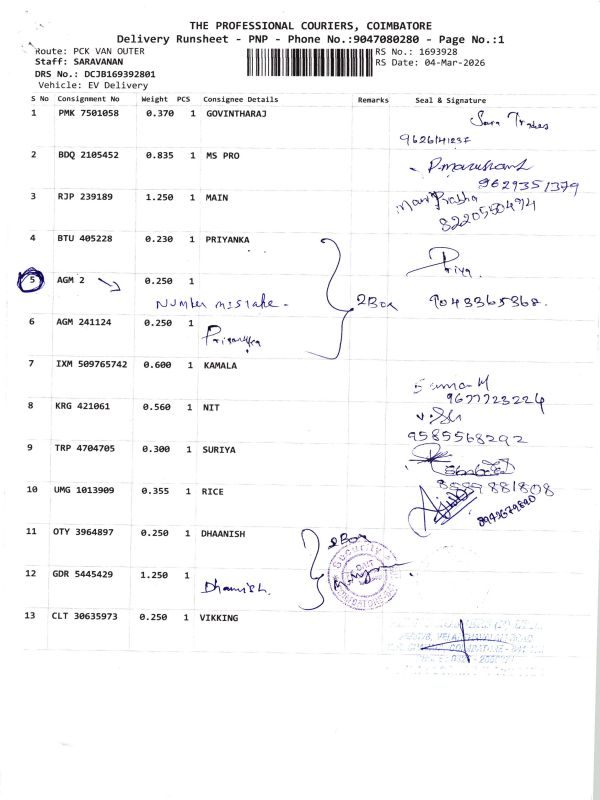 THE PROFESSIONAL COURIERS, COIMBATORE
Delivery Runsheet - PNP - Phone No.:9047080280 - Page No.:1
Route: PCK VAN OUTER RS No.: 1693928
Staff: SARAVANAN RS Date: 04-Mar-2026
DRS No.: DCJB169392801
Vehicle: EV Delivery
S No Consignment No Weight PCS Consignee Details Remarks Seal & Signature
1 PMK 7501058 0.370 1 GOVINTHARAJ
2 BDQ 2105452 0.835 1 MS PRO
9629351379
3 RJP 239189 1.250 1 MAIN
8220550494
4 BTU 405228 0.230 1 PRIYANKA
Priya.
5 AGM 2 0.250 1
Number mistake - 2 Box 9043365368.
6 AGM 241124 0.250 1
Priyanka
7 IXM 509765742 0.600 1 KAMALA
9677723224
8 KRG 421061 0.560 1 NIT
9585568292
9 TRP 4704705 0.300 1 SURIYA
10 UMG 1013909 0.355 1 RICE
11 OTY 3964897 0.250 1 DHAANISH
2 Box
12 GDR 5445429 1.250 1
Dhanish.
13 CLT 30635973 0.250 1 VIKKING